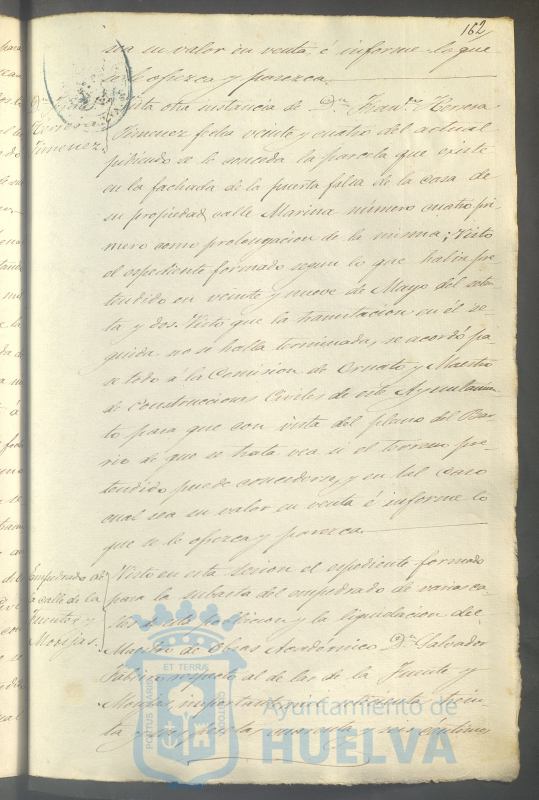 162
sea su valor en venta é informe lo que
se le ofrezca y parezca.
Dn Fran.co
Herrera
Jimenez.
Vista otra instancia de Dn Fran.co Herrera
Jimenez fecha veinte y cuatro del actual
pidiendo se le conceda la parcela que existe
en la fachada de la puerta falsa de la casa de
su propiedad calle Marina número cuatro pri
mero como prolongacion de la misma; Visto
el espediente formado segun lo que habia pre
tendido en veinte y nueve de Mayo del seten
ta y dos. Visto que la tramitacion en él se
guida no se halla terminada, se acordó pa
se todo á la Comision de Ornato y Maestro
de Construcciones Civiles de este Ayuntamien
to para que con vista del plano del Bar
rio de que se trata vea si el terreno pre
tendido puede concederse, y en tal caso
cual sea su valor en venta é informe lo
que se le ofrezca y parezca.
Empedrado de
la calle de la
Fuente y
Monjas.
Visto en esta sesion el espediente formado
para la subasta del empedrado de varias ca
lles de esta poblacion y la liquidacion del
Maestro de Obras Académico Dn Salvador
respecto al de las de la Fuente y
Monjas, importante mil trescientas trein
ta y pesetas cuarenta y seis céntimos
PORTUS MARIS ET TERRAE CUSTODIA
Ayuntamiento de
HUELVA